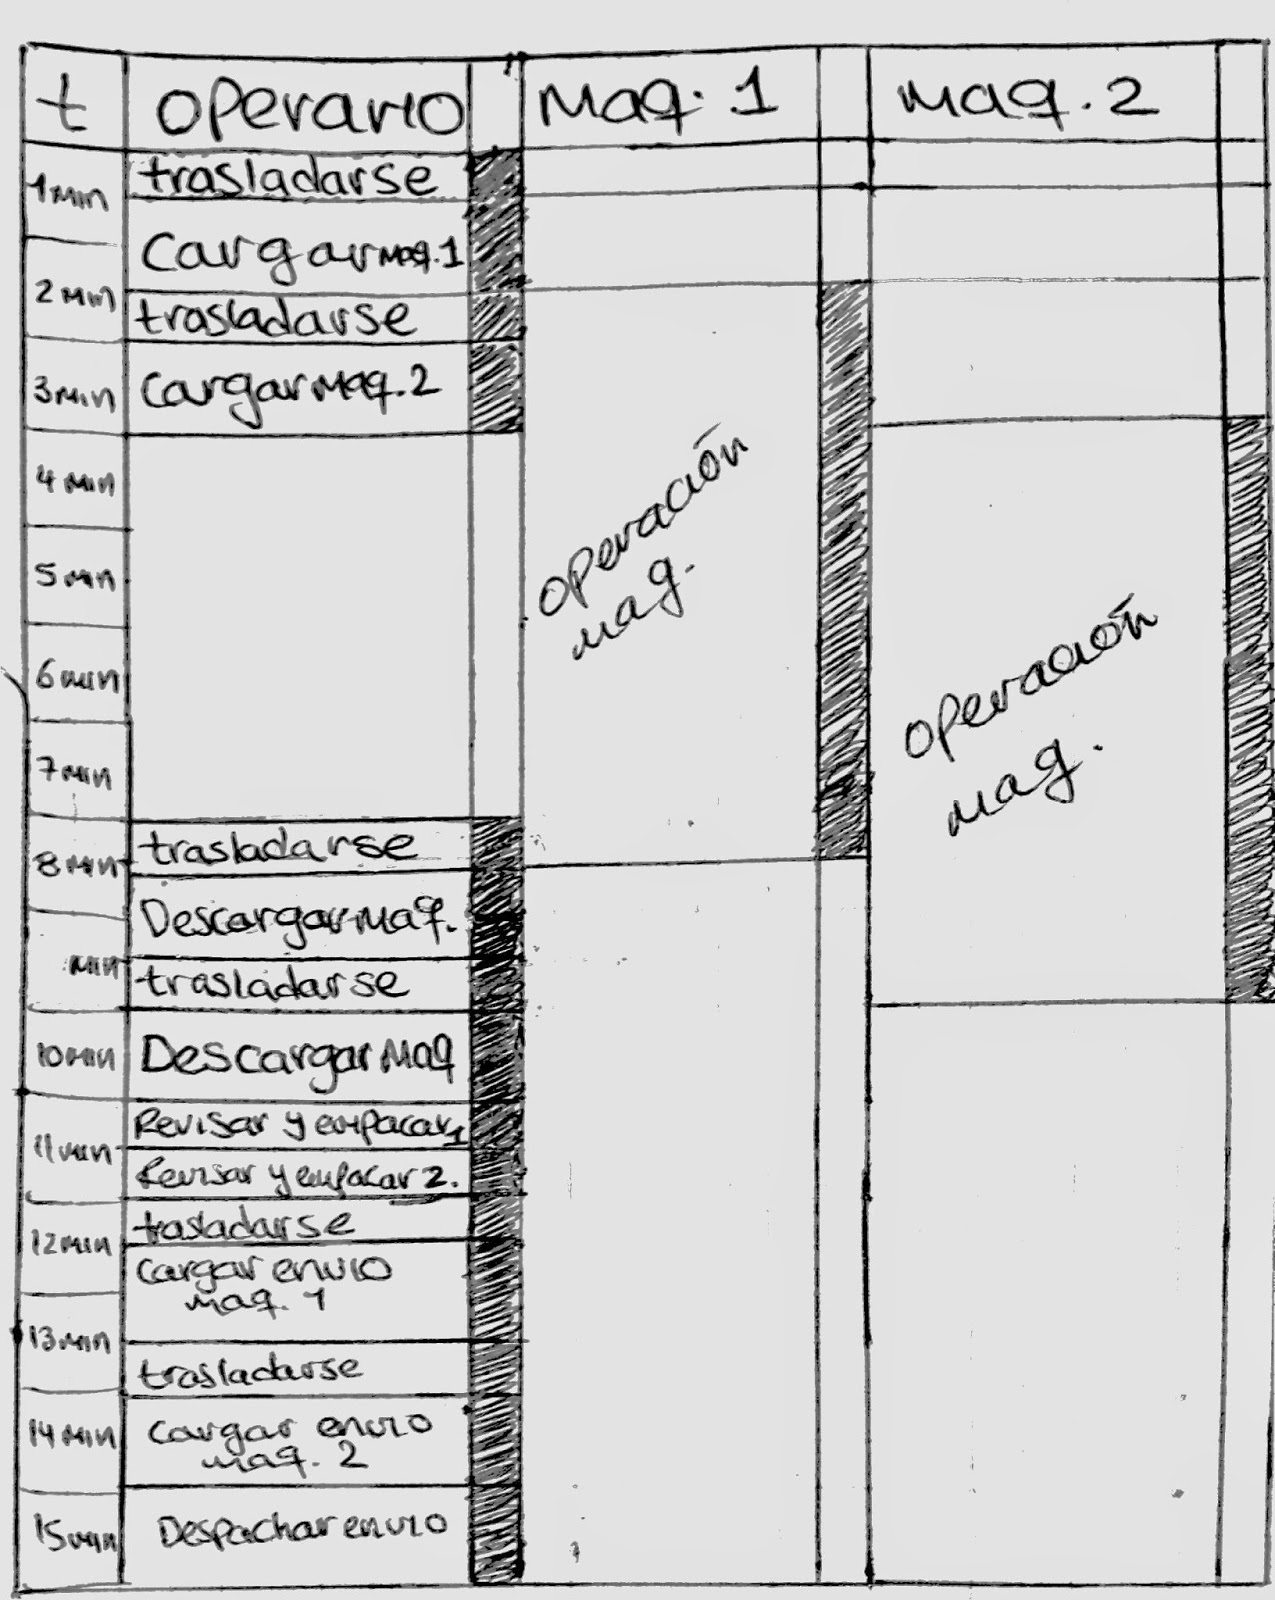 t operario Maq. 1 Maq. 2
1 min
trasladarse
Cargar Maq. 1
2 min
trasladarse
3 min
Cargar Maq. 2
4 min
5 min
6 min
7 min
operación
maq.
operación
maq.
8 min
trasladarse
Descargar Maq.
min
trasladarse
10 min
Descargar Maq
11 min
Revisar y empacar 1
Revisar y empacar 2.
12 min
trasladarse
Cargar envio
maq. 1
13 min
trasladarse
14 min
Cargar envio
maq. 2
15 min
Despachar envio